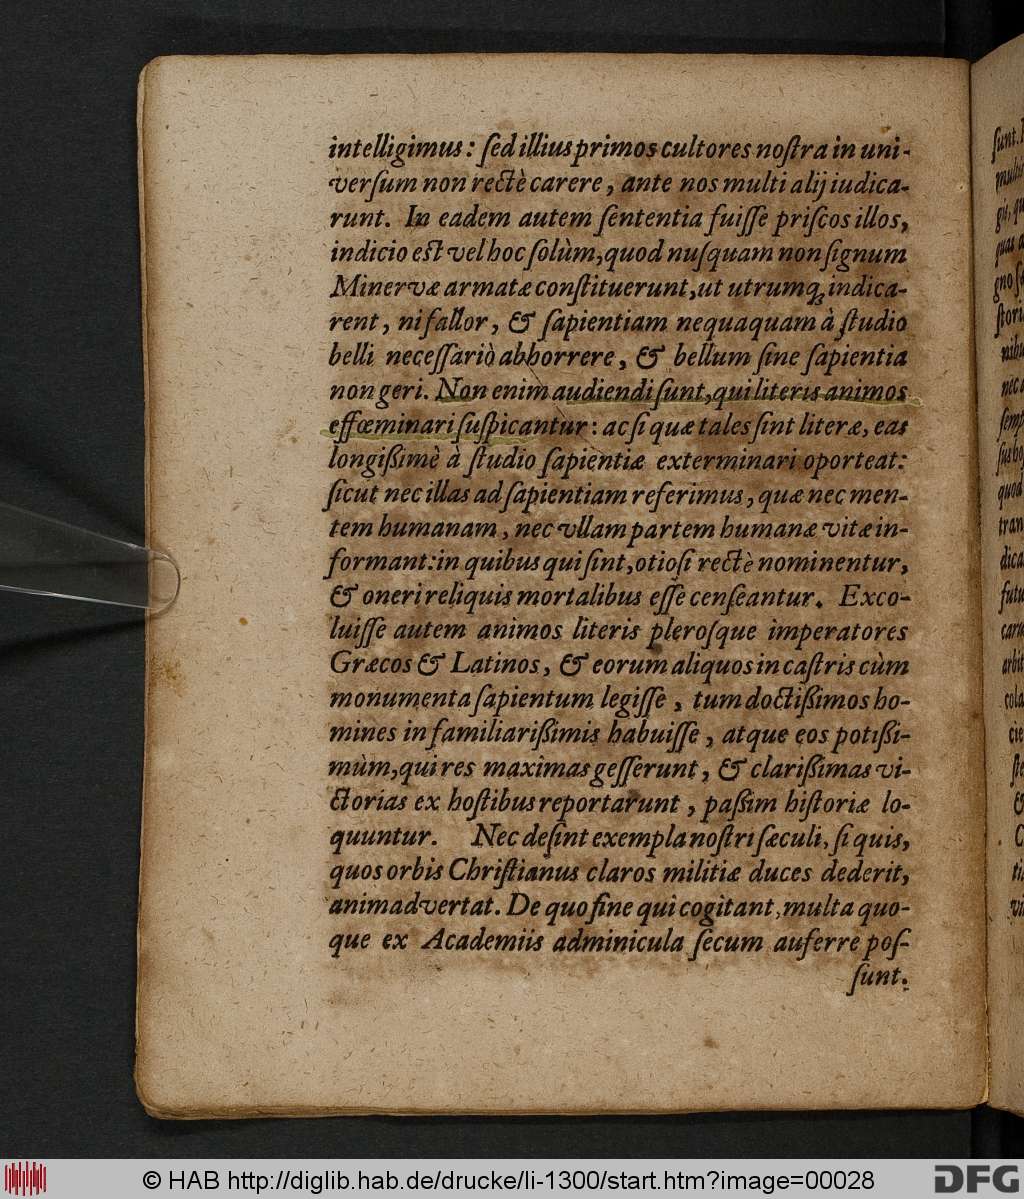 intelligimus: sed illius primos cultores nostra in uni-
versum non rectè carere, ante nos multi alij iudica-
runt. In eadem autem sententia fuisse priscos illos,
indicio est vel hoc solùm, quod nusquam non signum
Minervæ armatæ constituerunt, ut utrumq; indica-
rent, ni fallor, & sapientiam nequaquam à studio
belli necessariò abhorrere, & bellum sine sapientia
non geri. Non enim audiendi sunt, qui literis animos
effœminari suspicantur: ac si quæ tales sint literæ, eas
longißimè à studio sapientiæ exterminari oporteat:
sicut nec illas ad sapientiam referimus, quæ nec men-
tem humanam, nec vllam partem humanæ vitæ in-
formant: in quibus qui sint, otiosi rectè nominentur,
& oneri reliquis mortalibus esse censeantur. Exco-
luisse autem animos literis plerosque imperatores
Græcos & Latinos, & eorum aliquos in castris cùm
monumenta sapientum legisse, tum doctißimos ho-
mines in familiarißimis habuisse, atque eos potißi-
mùm, qui res maximas gesserunt, & clarißimas vi-
ctorias ex hostibus reportarunt, paßim historiæ lo-
quuntur. Nec desint exempla nostri sæculi, si quis,
quos orbis Christianus claros militiæ duces dederit,
animadvertat. De quo fine qui cogitant, multa quo-
que ex Academiis adminicula secum auferre pos-
sunt.
© HAB http://diglib.hab.de/drucke/li-1300/start.htm?image=00028
DFG